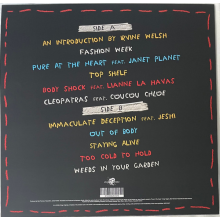 SIDE A
AN INTRODUCTION BY IRVINE WELSH
FASHION WEEK
PURE AT THE HEART FEAT. JANET PLANET
TOP SHELF
BODY SHOCK FEAT. LIANNE LA HAVAS
CLEOPATRAS FEAT. COUCOU CHLOE
SIDE B
IMMACULATE DECEPTION FEAT. JESHI
OUT OF BODY
STAYING ALIVE
TOO COLD TO HOLD
WEEDS IN YOUR GARDEN